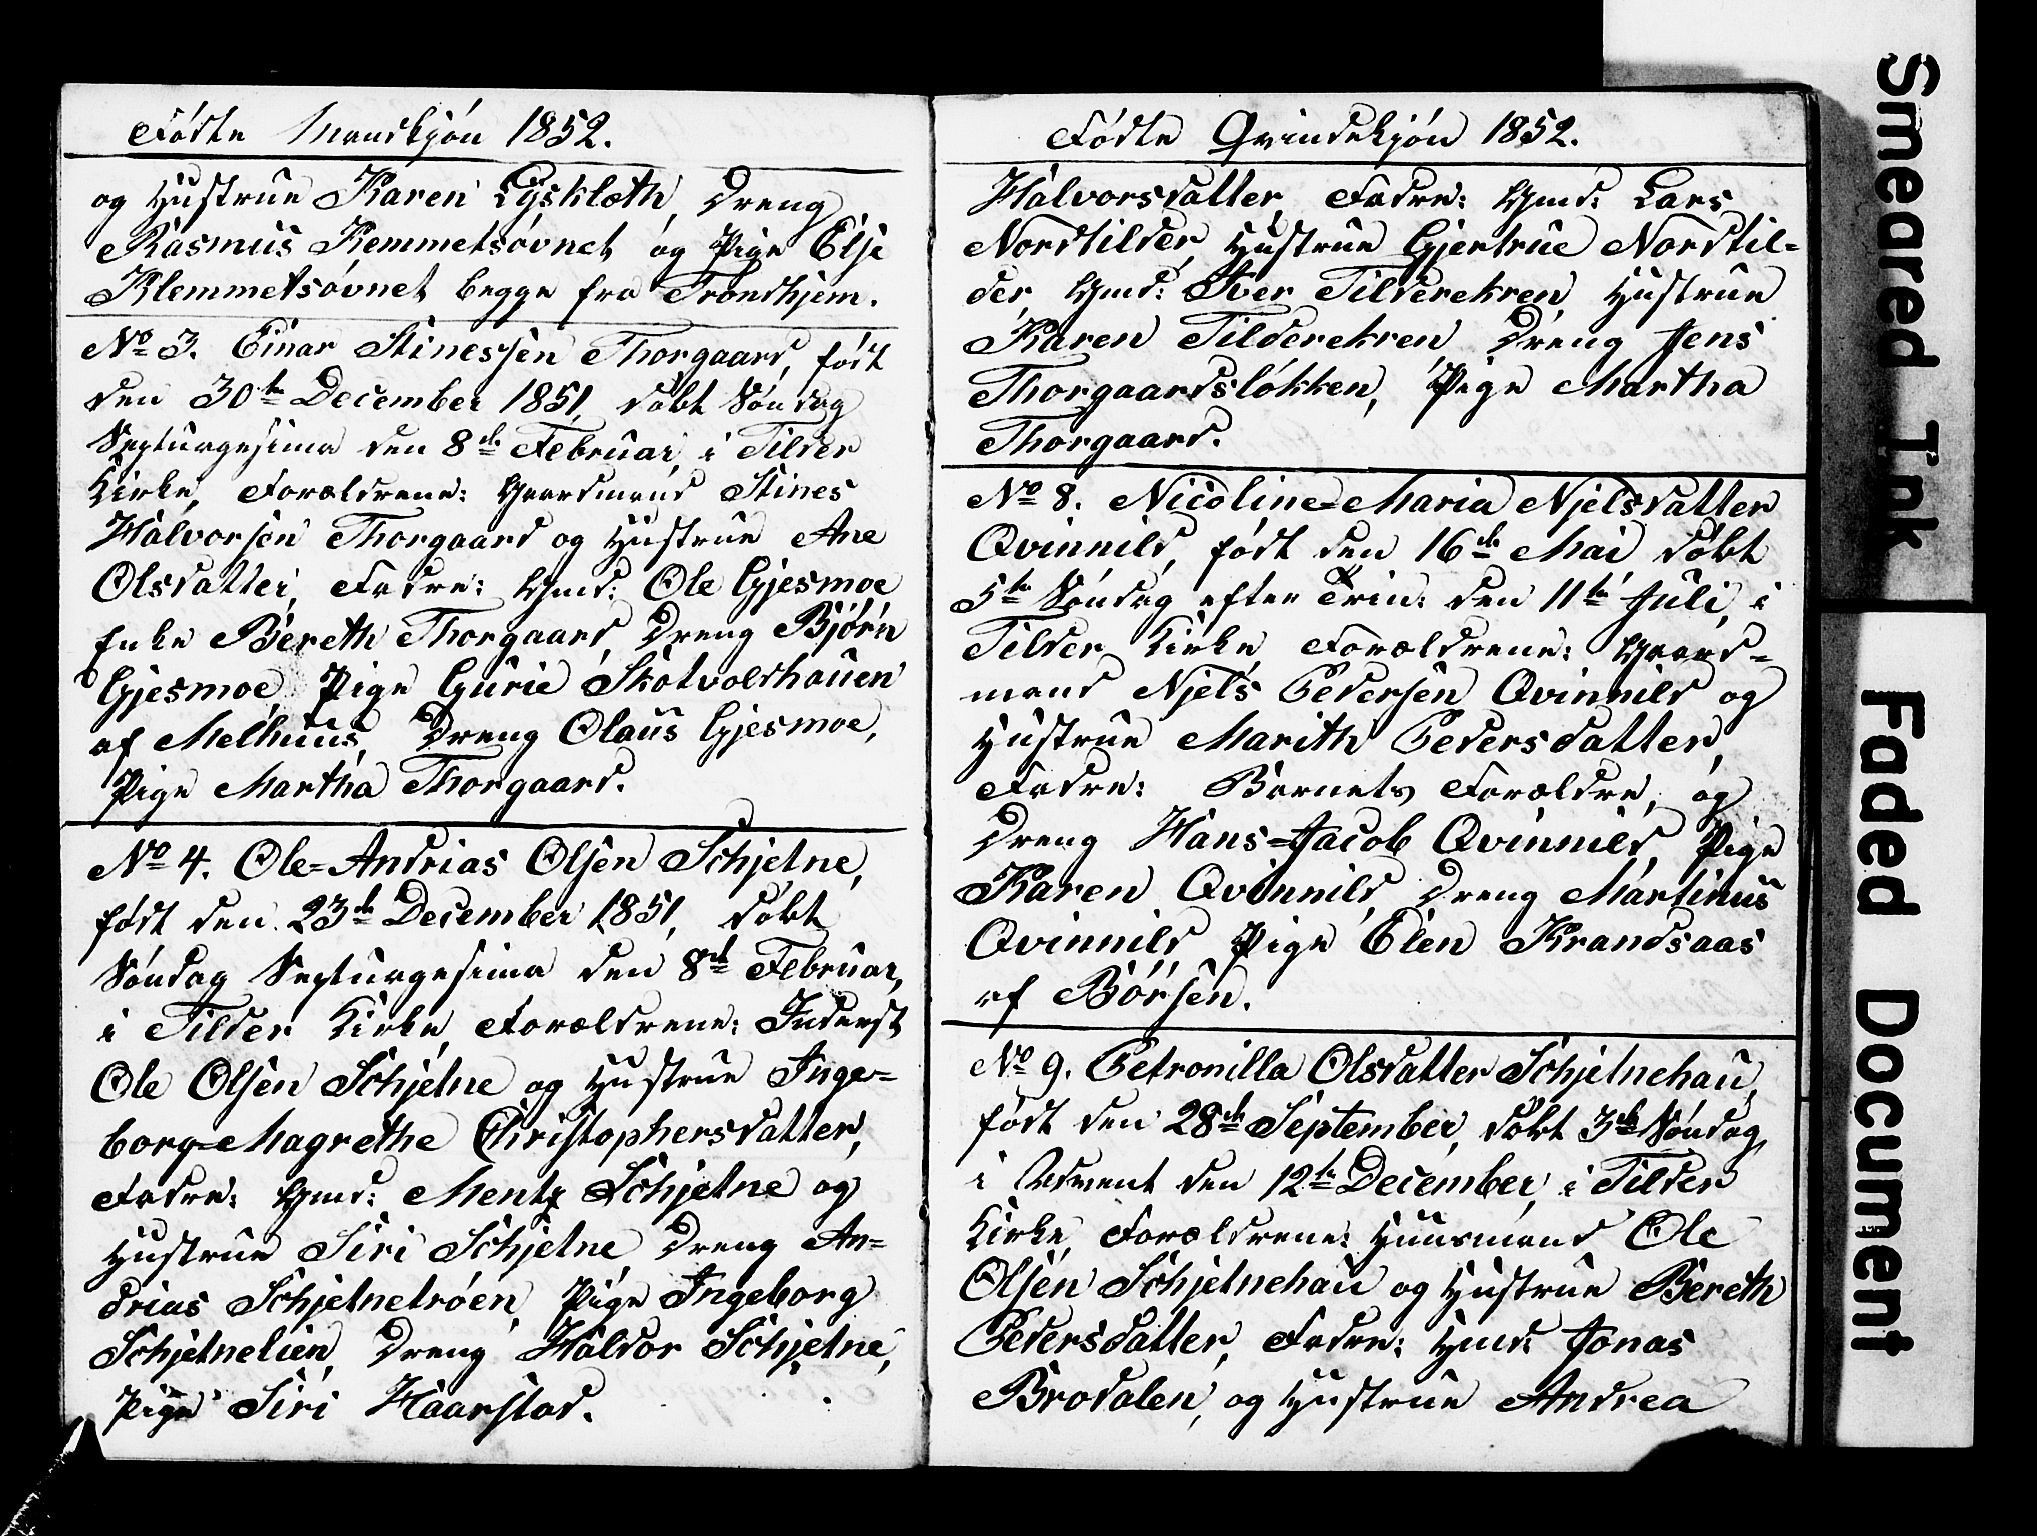 Fødte Mandkjøn 1852.
og Hustrue Karen Lÿskleth, Dreng
Rasmus Klemmetsøvnet og Pige Elsje
Klemmetsøvnet begge fra Trondhjem.
No 3. Einar Stinessen Thorgaard, født
den 30te December 1851, døbt Søndag
Septuagesima den 8de Februar, i Tilder
Kirke, Forældrene: Gaardmand Stines
Halvorsen Thorgaard og Hustrue Ane
Olsdatter, Fadre: Gmd: Ole Gjesmoe
Enke Bereth Thorgaard, Dreng Bjørn
Gjesmoe, Pige Gurie Skotvoldhauen
af Melhuus, Dreng Olaus Gjesmoe,
Pige Martha Thorgaard.
No 4. Ole=Andrias Olsen Schjetne,
født den 23de December 1851, døbt
Søndag Septuagesima den 8de Februar,
i Tilder Kirke, Forældrene: Inderst
Ole Olsen Schjetne og Hustrue Inge=
borg=Magrethe Christophersdatter,
Fadre: Gmd: Mentz Schjetne og
Hustrue Siri Schjetne, Dreng An=
drias Schjetnetrøen, Pige Ingeborg
Schjetnelien, Dreng Haldor Schjetne,
Pige Siri Haarstad.
Fødte Qvindekjøn 1852.
Halvorsdatter, Fadre: Gmd: Lars
Nordtilder, Hustrue Gjertrue Nordtil=
der, Gmd: Iver Tilderekren, Hustrue
Karen Tilderekren, Dreng Jens
Thorgaardsløkken, Pige Martha
Thorgaard.
No 8. Nicoline=Maria Njelsdatter
Qvinnild, født den 16de Mai, døbt
5te Søndag efter Trin: den 11te Juli, i
Tilder Kirke, Forældrene: Gaard=
mand Njels Pedersen Qvinnild og
Hustrue Marith Pedersdatter,
Fadre: Barnets Forældre, og
Dreng Hans=Jacob Qvinnild, Pige
Karen Qvinnild, Dreng Martinus
Qvinnild, Pige Elen Krandsaas
af Børsen.
No 9. Petronilla Olsdatter Schjetnehau,
født den 28de September, døbt 3de Søndag,
i Advent den 12te December, i Tilder
Kirke, Forældrene: Huusmand Ole
Olsen Schjetnehau og Hustrue Bereth
Pedersdatter, Fadre: Hmd: Jonas
Brodalen, og Hustrue Andrea
Smeared Ink
Faded Document